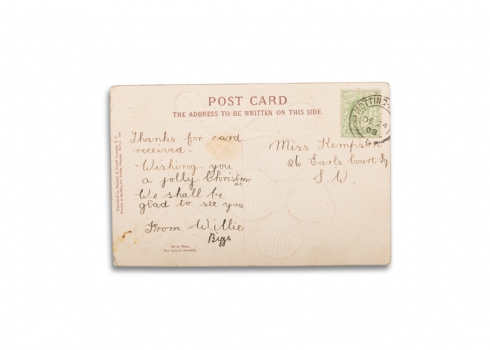 POST CARD
THE ADDRESS TO BE WRITTEN ON THIS SIDE.
Thanks for card
received.
Wishing you
a jolly Christm
as
We shall be
glad to see you
From Willie
Bigs
Miss Kempson
26 Earls Court Sq
S.W.
DE 24
08